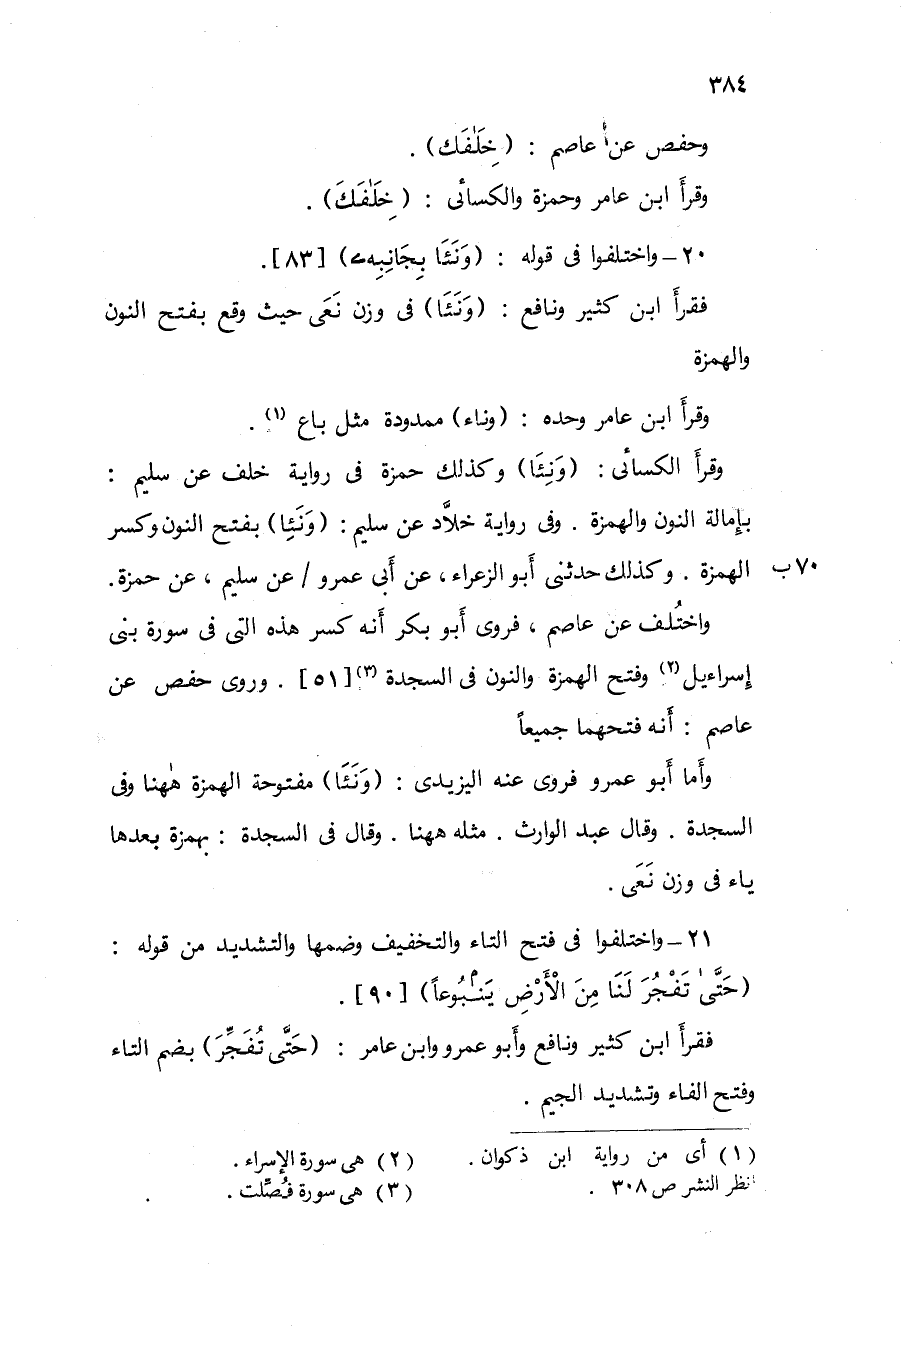 ٣٨٤
وحفص عن عاصم : ( خَلْفَك ) .
وقرأَ ابن عامر وحمزة والكسائى : ( خِلَٰفَكَ ) .
٢٠ – واختلفوا فى قوله : ( وَنَئَا بِجَانِبِهِۦ ) [ ٨٣ ] .
فقرأَ ابن كثير ونافع : ( وَنَئَا ) فى وزن نَعَى حيث وقع بفتح النون
والهمزة
وقرأَ ابن عامر وحده : ( وناء ) ممدودة مثل باع (١) .
وقرأَ الكسائى : ( وَنِئَا ) وكذلك حمزة فى رواية خلف عن سليم :
بإِمالة النون والهمزة . وفى رواية خلاَّد عن سليم : ( وَنَئِا ) بفتح النون وكسر
٧٠ب الهمزة . وكذلك حدثنى أَبو الزعراء ، عن أَبى عمرو / عن سليم ، عن حمزة .
واختُلف عن عاصم ، فروى أَبو بكر أَنه كسر هذه التى فى سورة بنى
إسراءيل (٢) وفتح الهمزة والنون فى السجدة (٣) [ ٥١ ] . وروى حفص عن
عاصم : أَنه فتحهما جميعاً
وأَما أَبو عمرو فروى عنه اليزيدى : ( وَنَئَا ) مفتوحة الهمزة هٰهنا وفى
السجدة . وقال عبد الوارث . مثله ههنا . وقال فى السجدة : بهمزة بعدها
ياء فى وزن نَعَى .
٢١ – واختلفوا فى فتح التاء والتخفيف وضمها والتشديد من قوله :
( حَتَّىٰ تَفْجُرَ لَنَا مِنَ الْأَرْضِ يَنۢبُوعاً ) [ ٩٠ ] .
فقرأَ ابن كثير ونافع وأَبو عمرو وابن عامر : ( حَتَّى تُفَجِّرَ ) بضم التاء
وفتح الفاء وتشديد الجيم .
( ١ ) أى من رواية ابن ذكوان .
انظر النشر ص ٣٠٨ .
( ٢ ) هى سورة الإسراء .
( ٣ ) هى سورة فُصِّلت .